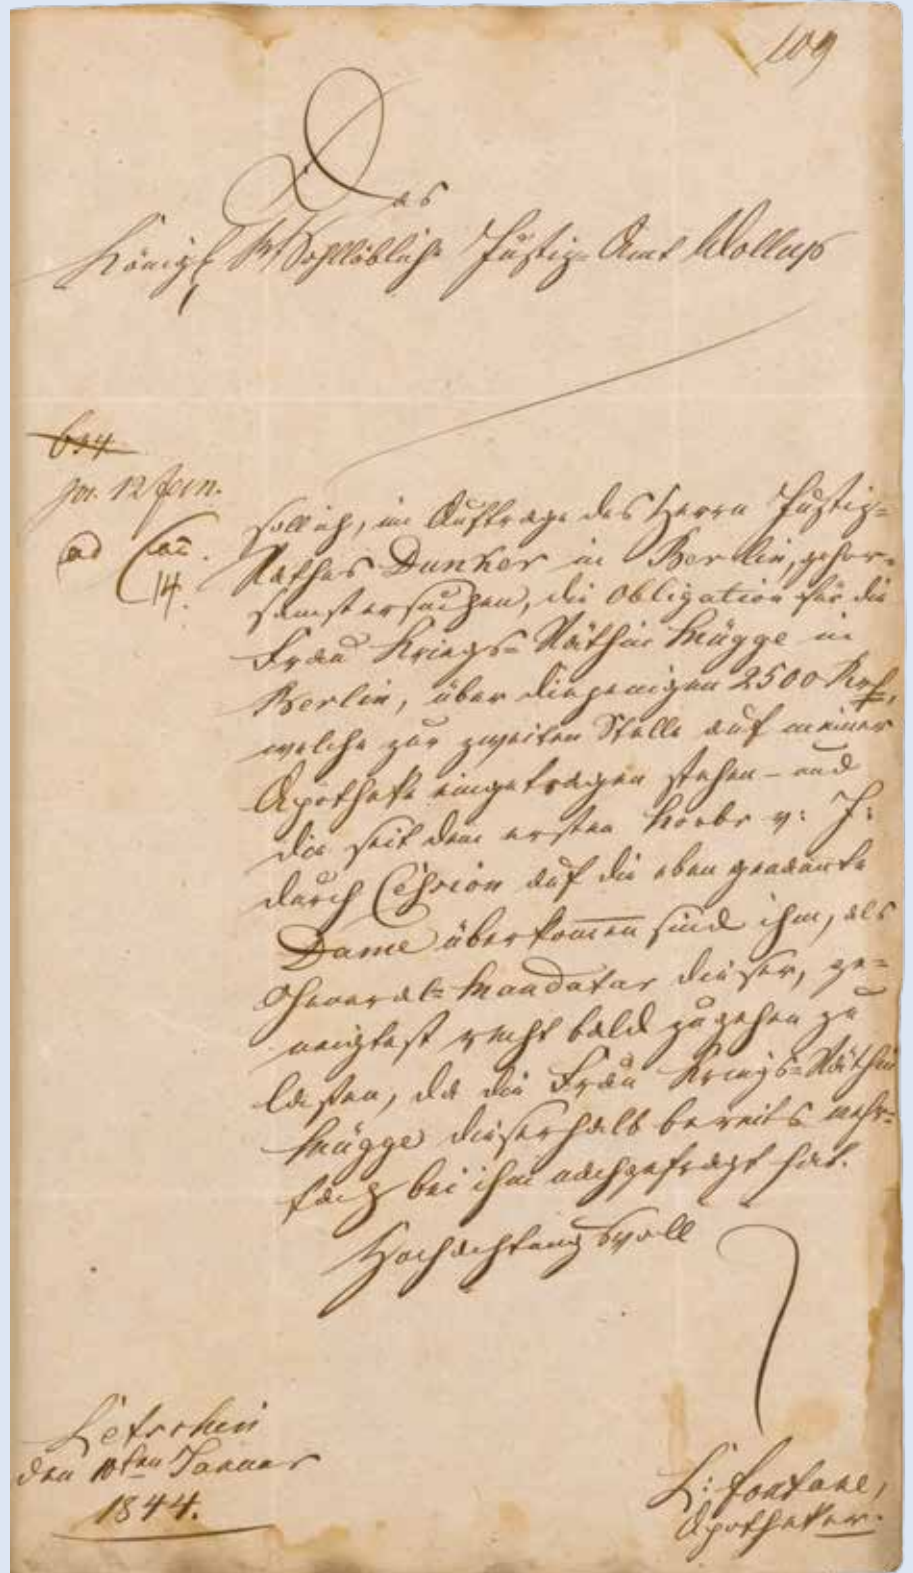 109
Das
Königl Wohllöbliche Justiz-Amt Wollup
634
pr. 12 Jan.
ad
14.
soll ich, im Auftrage des Herrn Justiz=
Rathes Dunker in Berlin, gehor=
samst ersuchen, die Obligation für die
Frau Kriegs=Räthin Mügge in
Berlin, über diejenigen 2500 Rtl,
welche zur zweiten Stelle auf meiner
Apotheke eingetragen stehen – und
die seit dem ersten Novbr v: J:
durch Cession auf die eben genannte
Dame überkommen sind ihm, als
General=Mandatar dieser, ge=
neigtest recht bald zugehen zu
lassen, da die Frau Kriegs=Räthin
Mügge dieserhalb bereits mehr=
fach bei ihm nachgefragt hat.
Hochachtungsvoll
Letschin
den 10ten Januar
1844.
L: Fontane,
Apotheker.